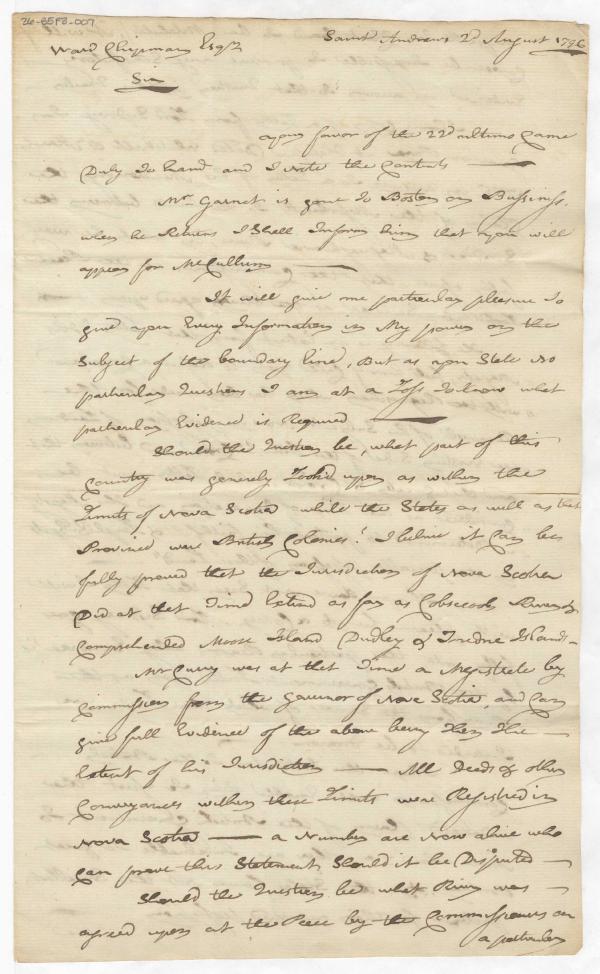 26-85F8-007
Saint Andrews 2d August 1796
Ward Chipman Esqr
Sir
your favor of the 22d ultimo Came
Duly to hand and I note the Contents
Mr Garnet is gone to Boston on Bussiness,
when he Returns I Shall Inform him that you will
appear for McCullum,
It will give me particular pleasure to
give you Every Information in My power on the
Subject of the boundary line, But as you State no
particular Questions I am at a Loss to know what
particular Evidence is Required
Should the Question be, what part of this
Country was generely Look'd upon as within the
Limits of Nova Scotia while the States as well as that
Province were British Colonies? I believe it Can be
fully proved that the Jurisdiction of Nova Scotia
Did at that Time Extend as far as Cobscook River &
Comprehended Moose Island Dudley & Fredric Islands
Mr Curry was at that Time a Magistrate by
Commission from the Govenor of Nova Scotia, and Can
give full Evidence of the above being then the
Extent of his Jurisdiction All Deeds & other
Conveyances within these Limits were Registred in
Nova Scotia a Number are Now alive who
Can prove this Statement Should it be Disputed
Should the Question be what River was
agreed upon at the Peace by the Commissioners on
a particular